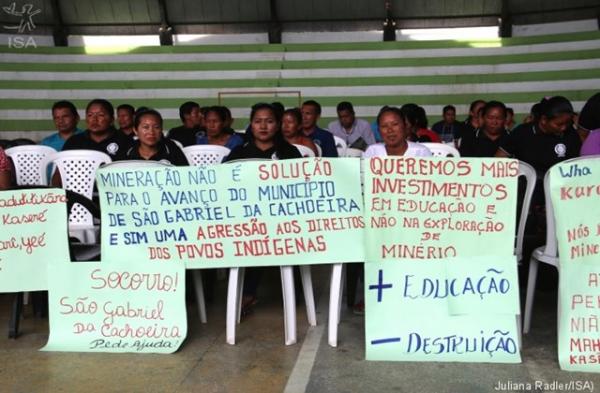 ISA
MINERAÇÃO NÃO É SOLUÇÃO
PARA O AVANÇO DO MUNICÍPIO
DE SÃO GABRIEL DA CACHOEIRA
E SIM UMA AGRESSÃO AOS DIREITOS
DOS POVOS INDÍGENAS
QUEREMOS MAIS
INVESTIMENTOS
EM EDUCAÇÃO E
NÃO NA EXPLORAÇÃO
DE
MINÉRIO
+ EDUCAÇÃO
- DESTRUIÇÃO
SOCORRO!
SÃO GABRIEL
DA CACHOEIRA
PEDE AJUDA!
KASERÉ
WHA
KASI
Juliana Radler/ISA)